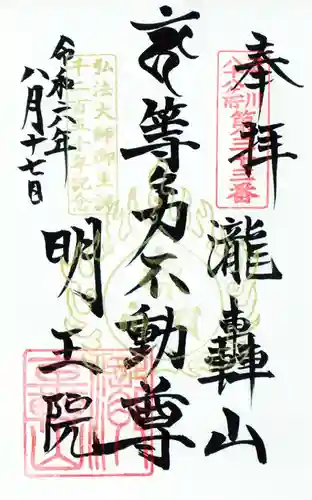 奉拝
玉川
八十八ヶ所
第三十三番
瀧轟山
等々力不動尊
弘法大師御生誕
千二百五十年記念
明王院
令和六年
八月十七日